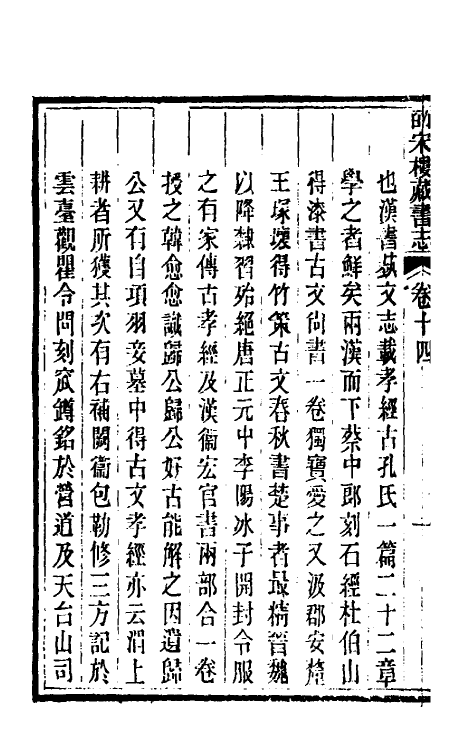 皕宋樓藏書志 卷十四 一
也漢書藝文志載孝經古孔氏一篇二十二章
學之者鮮矣兩漢而下蔡中郎刻石經杜伯山
得漆書古文尙書一卷獨寶愛之又汲郡安釐
王塚壞得竹策古文春秋書楚事者最精晉魏
以降隸習殆絕唐正元中李陽冰子開封令服
之有家傳古孝經及漢衞宏官書兩部合一卷
授之韓愈愈識歸公歸公好古能解之因遺歸
公又有自項羽妾墓中得古文孝經亦云渭上
耕者所獲其次有右補闕衞包勒修三方記於
雲臺觀瞿令問刻窊罇銘於營道及天台山司